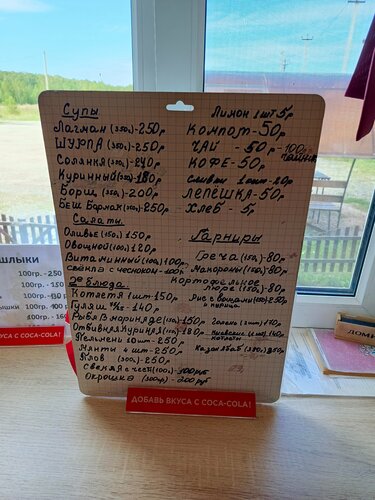 Супы
Лагман (350г)-250р
ШУРПА (350г)-250р
Солянка(350г)-240р
Куринный(350г)-180р
Борщ (350г)-200р
Беш Бармак(350г)-250р
Салаты
Оливье (150г) 150р
Овощной(100г) 120р
Витаминный(100г) 100р
свёкла с чесноком-100р
2е блюда
Котлета 1шт 150р
Гуляш -140р
Рыба В маринаде(150г)-150р
Отбивная Куриная 180р
Пельмени 10шт-250р
Манты 4шт-250р
Плов (300г)-250р
Окрошка (300гр)-200руб
Лимон 1шт 5р
Компот-50р
ЧАЙ - 50р-100р чайник
КОФЕ-50р
Сливки 1шт-20р
ЛЕПЁШКА-50р
Хлеб - 5р
Гарниры
Греча(150г)-80р
Макароны(150г)-80р
Картофельное
пюре (150г)-80р
Рис с овощами
и курица
котлеты
ДОБАВЬ ВКУСА С COCA-COLA!
ШЛЫКИ
100гр.-250
100гр.
100гр.
100гр.
100гр. - 160
КУСА С COCA-COLA!